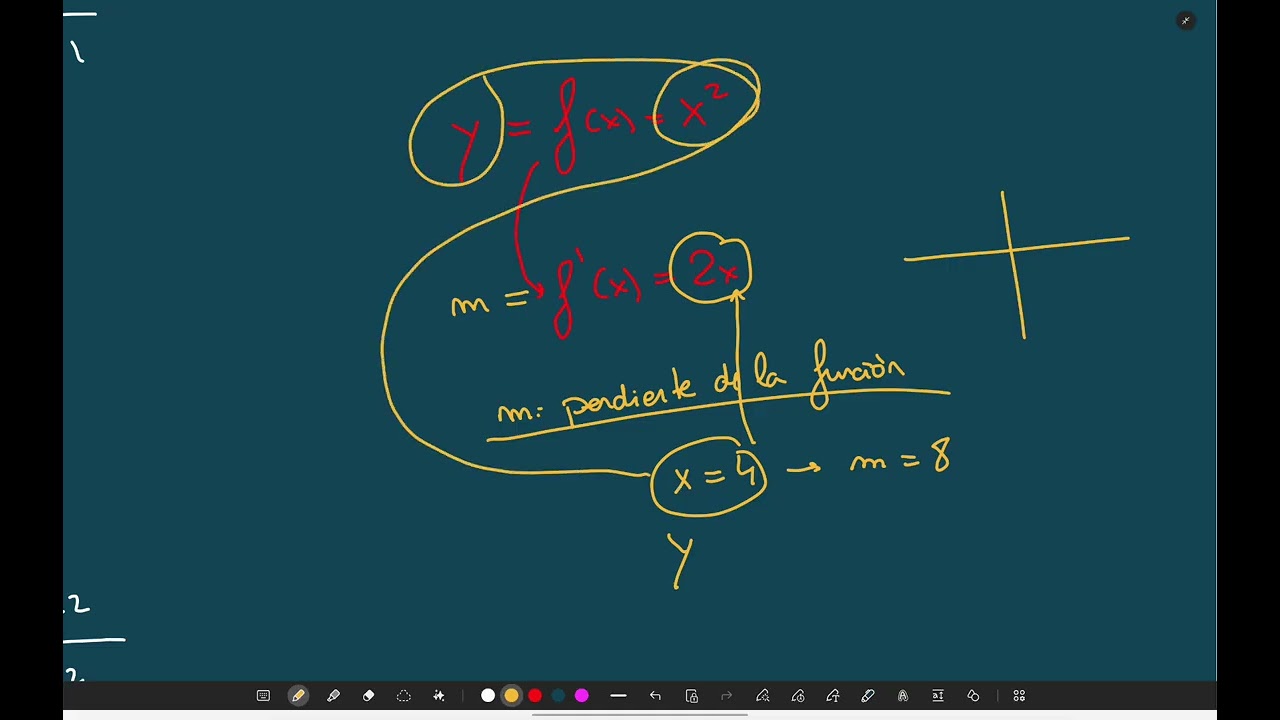 1
y = f(x) = x²
m = f'(x) = 2x
m: pendiente de la función
x = 4 → m = 8
y
.2
2